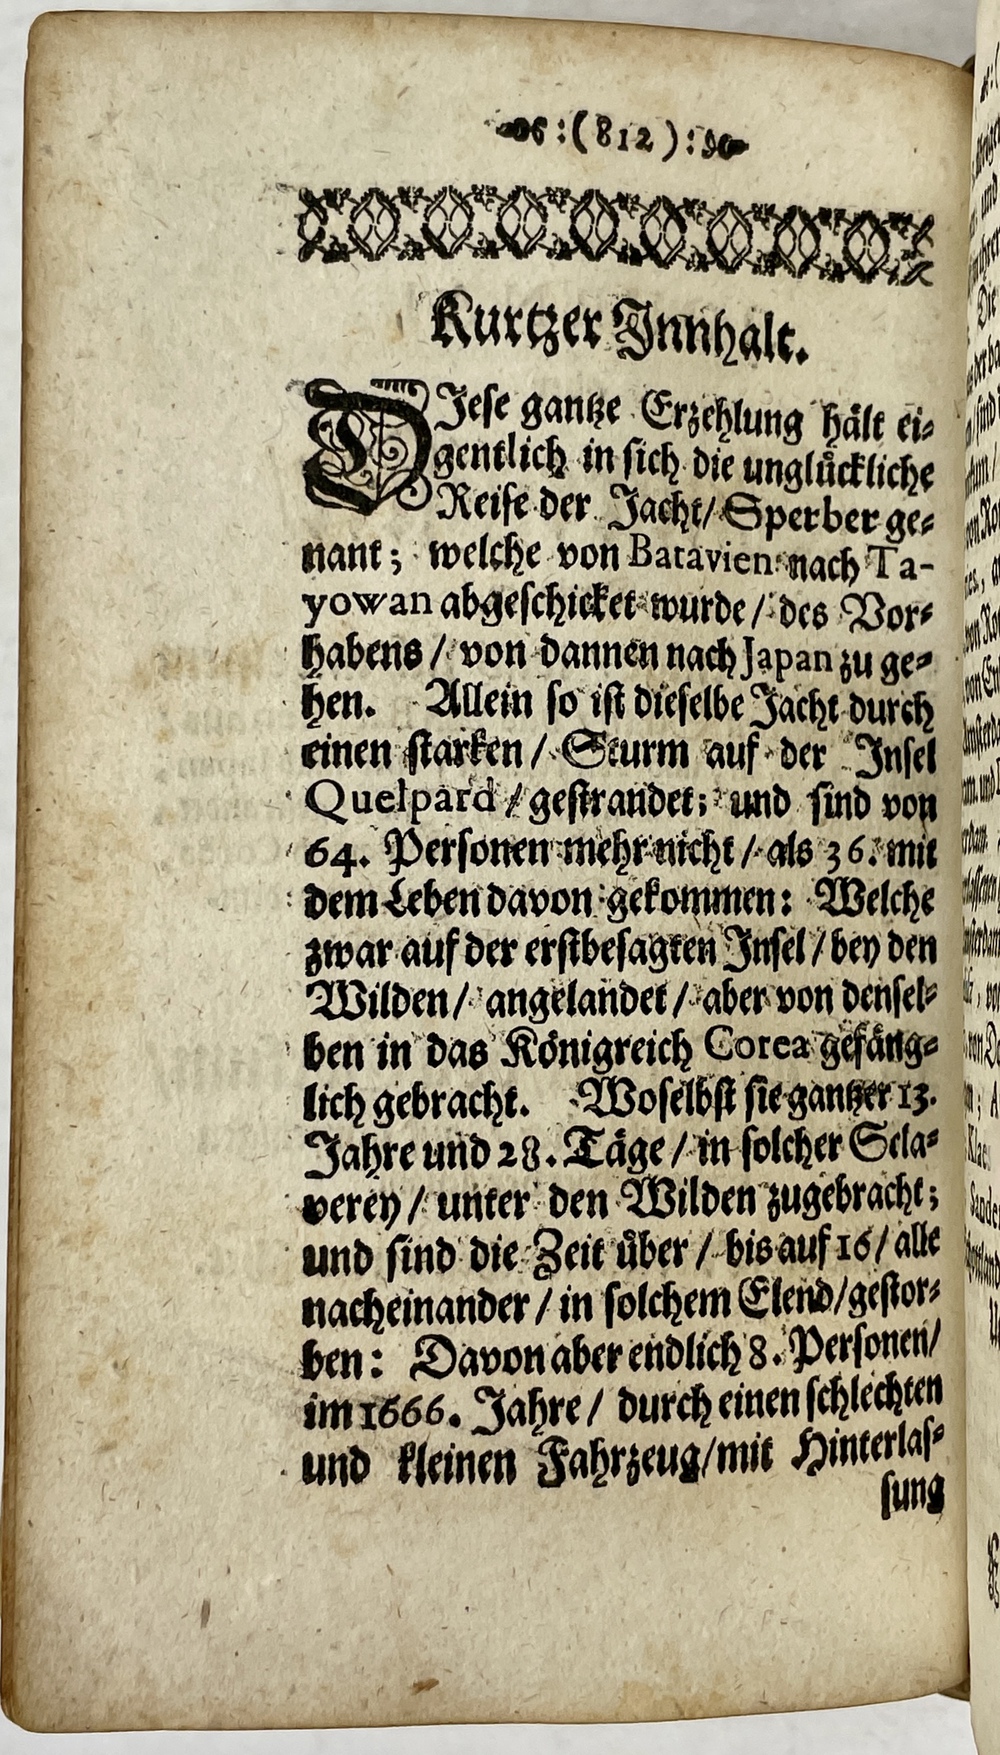 :(812):
Kurtzer Innhalt.
DIese gantze Erzehlung hält ei-
gentlich in sich die unglückliche
Reise der Jacht/ Sperber ge-
nant; welche von Batavien nach Ta-
yowan abgeschicket wurde/ des Vor-
habens/ von dannen nach Japan zu ge-
hen. Allein so ist dieselbe Jacht durch
einen starken/ Sturm auf der Insel
Quelpard/ gestrandet; und sind von
64. Personen mehr nicht/ als 36. mit
dem Leben davon gekommen: Welche
zwar auf der erstbesagten Insel/ bey den
Wilden/ angelandet/ aber von densel-
ben in das Königreich Corea gefäng-
lich gebracht. Woselbst sie gantzer 13.
Jahre und 28. Täge/ in solcher Scla-
verey/ unter den Wilden zugebracht;
und sind die Zeit über/ bis auf 16/ alle
nacheinander/ in solchem Elend/ gestor-
ben: Davon aber endlich 8. Personen/
im 1666. Jahre/ durch einen schlechten
und kleinen Fahrzeug/ mit Hinterlas-
sung